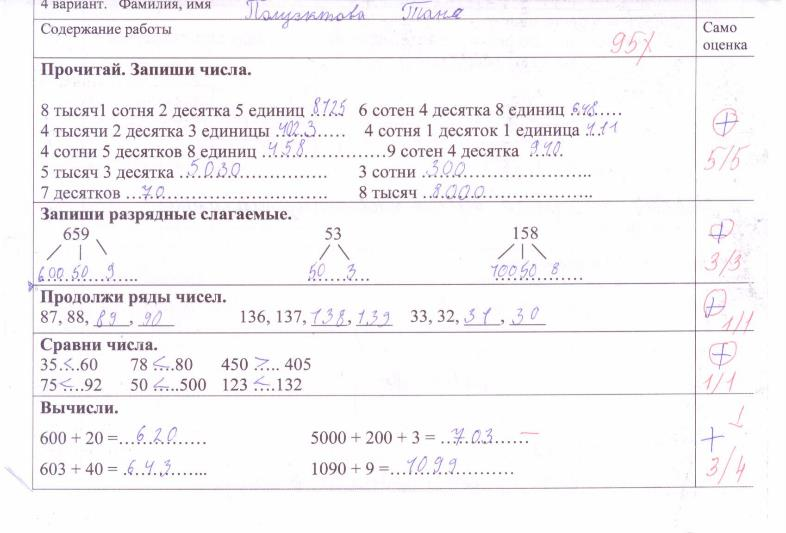 4 вариант. Фамилия, имя Полуэктова Таня
Содержание работы 95% Само
оценка
Прочитай. Запиши числа.
8 тысяч1 сотня 2 десятка 5 единиц 8125 6 сотен 4 десятка 8 единиц 648
4 тысячи 2 десятка 3 единицы 4023 4 сотня 1 десяток 1 единица 411
4 сотни 5 десятков 8 единиц 458 9 сотен 4 десятка 940
5 тысяч 3 десятка 5030 3 сотни 300
7 десятков 70 8 тысяч 8000
+
5/5
Запиши разрядные слагаемые.
659 53 158
600 50 9 50 3 100 50 8
+
3/3
Продолжи ряды чисел.
87, 88, 89, 90 136, 137, 138, 139 33, 32, 31, 30
+
1/1
Сравни числа.
35 < 60 78 < 80 450 > 405
75 < 92 50 < 500 123 < 132
+
1/1
Вычисли.
600 + 20 = 620 5000 + 200 + 3 = 703 –
603 + 40 = 643 1090 + 9 = 1099
+
3/4